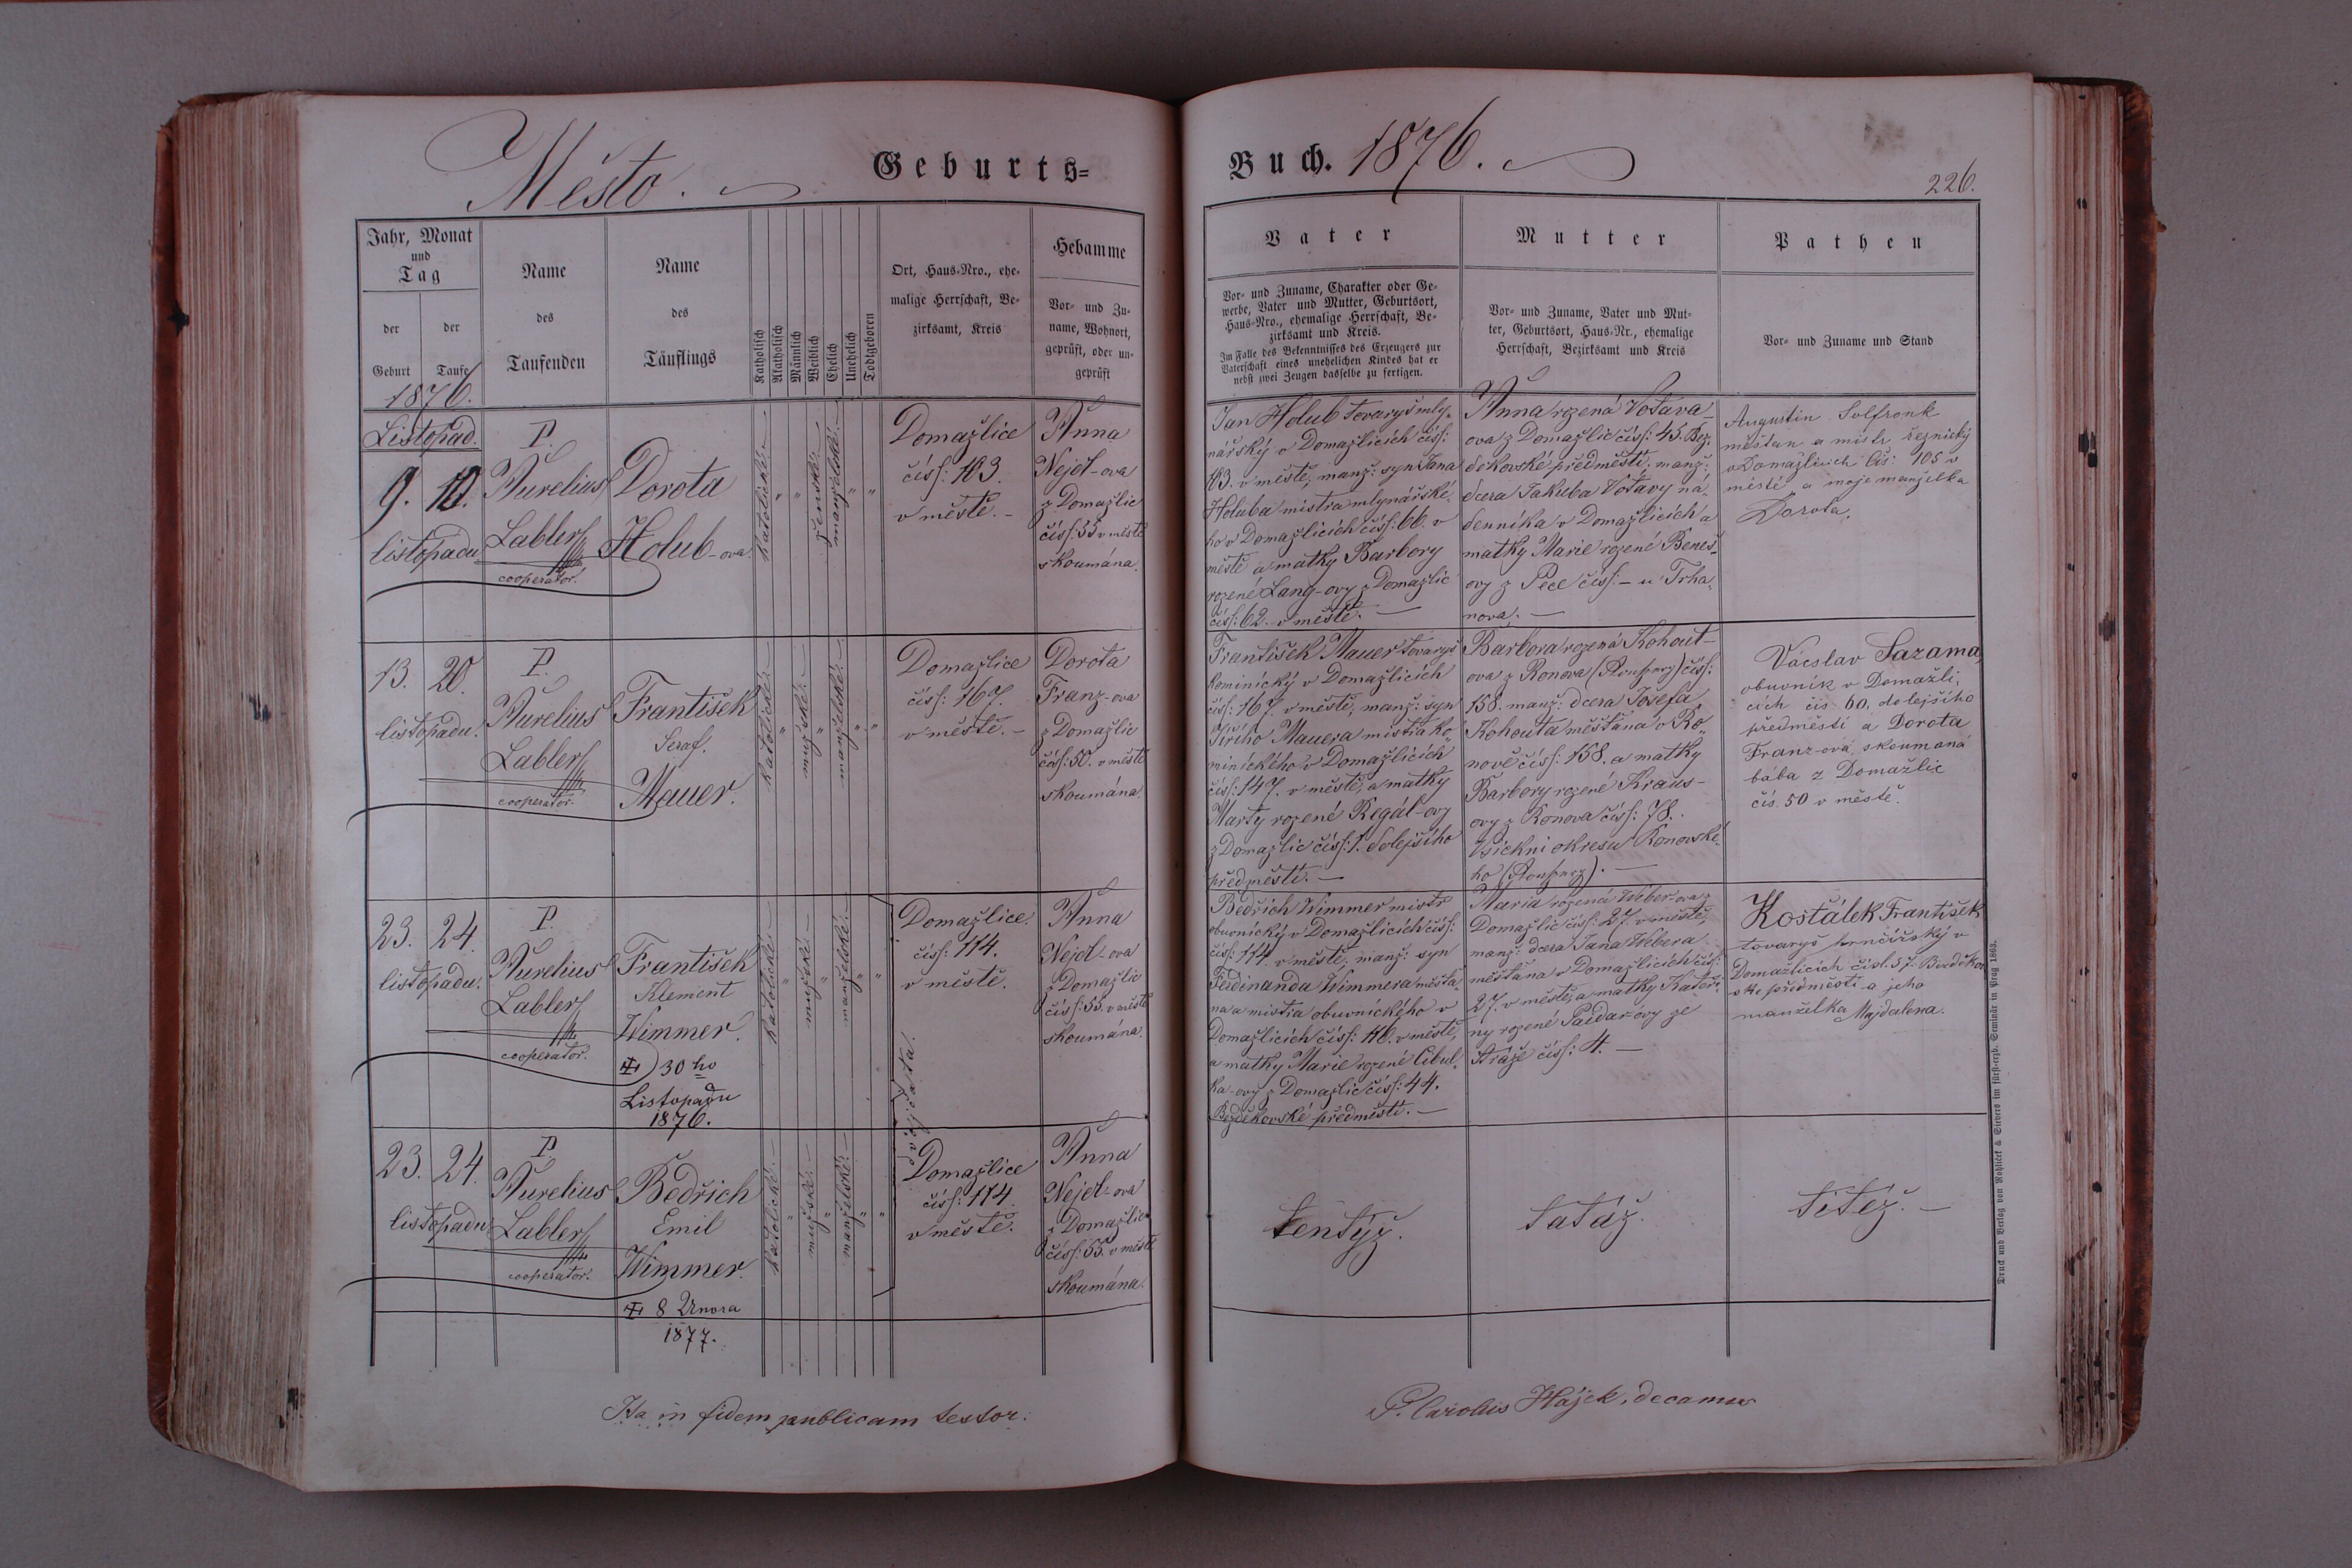 Město.
Geburts=
Buch. 1876.
226.
Jahr, Monat
und
Tag
der
Geburt
der
Taufe
Name
des
Taufenden
Name
des
Täuflings
Katholisch
Akatholisch
Männlich
Weiblich
Ehelich
Unehelich
Todtgeboren
Ort, Haus-Nro., ehe-
malige Herrschaft, Be-
zirksamt, Kreis
Hebamme
Vor- und Zu-
name, Wohnort,
geprüft, oder un-
geprüft
Vater
Vor- und Zuname, Charakter oder Ge-
werbe, Vater und Mutter, Geburtsort,
Haus-Nro., ehemalige Herrschaft, Be-
zirksamt und Kreis.
Im Falle des Bekenntnisses des Erzeugers zur
Vaterschaft eines unehelichen Kindes hat er
nebst zwei Zeugen dasselbe zu fertigen.
Mutter
Vor- und Zuname, Vater und Mut-
ter, Geburtsort, Haus-Nr., ehemalige
Herrschaft, Bezirksamt und Kreis
Pathen
Vor- und Zuname und Stand
1876.
Listopad.
9. 10.
listopadu
P.
Aurelius
Labler
cooperator.
Dorota
Holub-ova.
katolické
"
"
ženské
manželské
"
"
Domažlice
čísl: 103.
v městě.
Anna
Nejdl-ova
z Domažlic
čísl: 55 v městě
skoumána.
Jan Holub tovaryš mly-
nářský v Domažlicích čísl:
103. v městě, manž: syn Jana
Holuba mistra mlynářské-
ho v Domažlicích čísl: 66. v
městě a matky Barbory
rozené Lang-ovy z Domažlic
čísl: 62. v městě.
Anna rozená Votava-
ova z Domažlic čísl: 45. Bez-
děkovské předměstí, manž:
dcera Jakuba Votavy ná-
denníka v Domažlicích a
matky Marie rozené Beneš-
ovy z Pece čísl: – u Trha-
nova.
Augustin Solfronk
měšťan a mistr řeznický
v Domažlicích čís: 105 v
městě a moje manželka
Dorota.
13. 20.
listopadu.
P.
Aurelius
Labler
cooperator.
František
Seraf.
Mauer.
katolické
"
mužské
"
manželské
"
"
Domažlice
čísl: 167.
v městě.
Dorota
Franz-ova
z Domažlic
čísl: 50. v městě
skoumána.
František Mauer tovaryš
kominický v Domažlicích
čísl: 167. v městě, manž: syn
Jiřího Mauera mistra ko-
minického v Domažlicích
čísl: 147. v městě, a matky
Marty rozené Regál-ovy
z Domažlic čísl: 1. dolejšího
předměstí.
Barbora rozená Kohout-
ova z Ronova čísl:
158. manž: dcera Josefa
Kohouta měšťana v Ro-
nově čísl: 158. a matky
Barbory rozené Kraus-
ovy z Ronova čísl: 78.
Všickni okresu Ronovské-
ho
Václav Sazama,
obuvník v Domažli-
cích čís 60. dolejšího
předměstí a Dorota
Franz-ová, skoumaná
bába z Domažlic
čís. 50 v městě.
23. 24.
listopadu.
P.
Aurelius
Labler
cooperator.
František
Klement
Wimmer.
30ho
Listopadu
1876.
katolické
"
mužské
"
manželské
"
"
dvojčata.
Domažlice.
čísl: 114.
v městě.
Anna
Nejdl-ova
z Domažlic
čísl: 55. v městě
skoumána.
Bedřich Wimmer mistr
obuvnický v Domažlicích čísl:
čísl: 114 v městě, manž: syn
Ferdinanda Wimmera měšťa-
na a mistra obuvnického v
Domažlicích čísl: 116. v městě,
a matky Marie rozené Cibul-
ka-ovy z Domažlic čísl: 44.
Bezděkovské předměstí.
Maria rozená Weber-ova z
Domažlic čísl: 27. v městě,
manž: dcera Jana Webera
měšťana v Domažlicích čísl:
27. v městě, a matky Kateři-
ny rozené Paidar-ovy ze
Stráže čísl: 4.
Košťálek František
tovaryš hrnčířský v
Domažlicích čísl. 57. Bezděkov
ské předměstí a jeho
manželka Majdalena.
23. 24.
listopadu
P.
Aurelius
Labler
cooperator.
Bedřich
Emil
Wimmer.
8 Února
1877.
katolické
"
mužské
"
manželské
"
"
Domažlice
čísl: 114.
v městě.
Anna
Nejdl-ova
z Domažlic
čísl: 55. v městě
skoumána.
tentýž.
tatáž.
títéž.
Ita in fidem publicam testor:
P. Carolus Hájek, decanus
Druck und Verlag von Rohliček & Sievers im fürst-erzb. Seminär in Prag 1863.